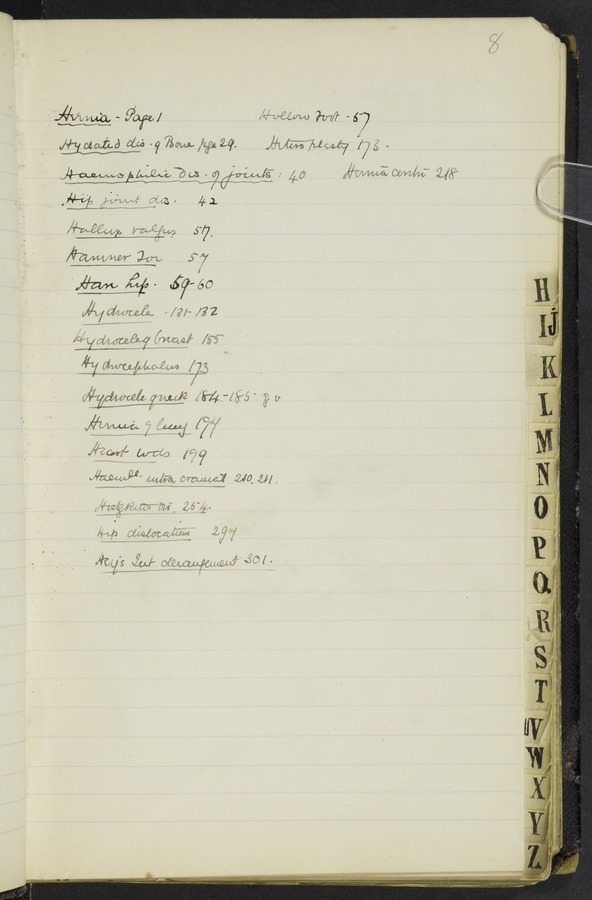 8
Hernia - Page 1 Hollow Foot - 57
Hydatid dis. of Bone page 29. Heteroplasty 173.
Haemophilic Dis. of joints : 40 Hernia cerebri 218
Hip joint dis. 42
Hallux valgus 57.
Hammer Toe 57
Hare Lip. 59-60
Hydrocele - 131-132
Hydrocele of breast 155
Hydrocephalus 173
Hydrocele of neck 184-185
Hernia of lung 194
Heart wds 199
Haem. intra cranial 210, 211.
Hodgkins dis. 254.
Hip dislocation 294
Hey's Int derangement 301.
H
IJ
K
L
M
N
O
P
Q
R
S
T
UV
W
X
Y
Z